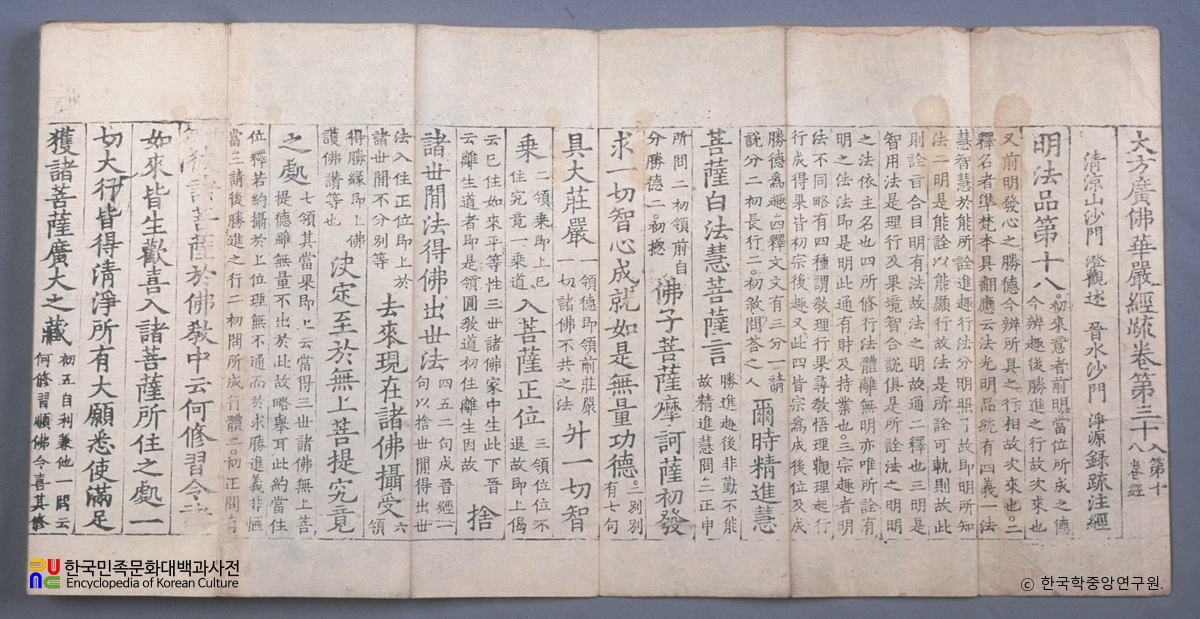 大方廣佛華嚴經䟽卷第三十八 入第十八卷經
清涼山沙門 澄觀述 晉水沙門 淨源錄疏注經
明法品第十八。
初來意者前明當位所成之德
今辨趣後勝進之行故次來也
又前明發心之勝德今辨所具之行相故次來也。二
釋名者準梵本具翻應云法光明品統有四義一法
慧智慧於能所詮進趣行法分明照了故即明所知
法二明是能詮以能顯行故法是所詮可軌則故此
則詮旨合目明有法故法之明故通二釋也三明是
智用法是理行及果境智合說俱是所詮法之明明
之法依主名也四所修行法體離無明亦唯所詮有
明之法法即是明此通有財及持業也。三宗趣者明
法不同略有四種謂教理行果尋教悟理觀理起行
行成得果皆初宗後趣又此四皆宗爲成後位及成
勝德爲趣。四釋文文有三分一請
說分二初長行二。初敘問荅之人
爾時精進慧
菩薩白法慧菩薩言
勝進趣後非勤不能
故精進慧問二正申
所問二初領前自
分勝德二。初揔
佛子菩薩摩訶薩初發
求一切智心成就如是無量功德。
二別別
有七句
具大莊嚴
一領德即領前莊嚴
一切諸佛不共之法
升一切智
乘
二領乘即上已
乘住究竟一乘道
入菩薩正位
三領位位不
退故即上偈
云已住如來平等性三世諸佛家中生此下晉
云離生道者即是領圓教道初住離生因故
捨
諸世間法得佛出世法
四五二句成晉經一
句以捨世間得出世
法入住正位即上於
諸世間不分別等
去來現在諸佛攝受
六
領
得勝緣即上佛
護佛讚等也
決定至於無上菩提究竟
之處
七領其當果即上云當得三世諸佛無上菩
提德雖無量不出於此故略舉耳此約當住
位釋若約攝於上位理無不通而於求勝進義非愜
當二請後勝進之行二初問所成行體二。初正問有
彼諸菩薩於佛教中云何修習令諸
如來皆生歡喜入諸菩薩所住之處一
切大行皆得清淨所有大願悉使滿足
獲諸菩薩廣大之藏
初五自利兼他一問云
何修習順佛令喜其修
한국민족문화대백과사전
Encyclopedia of Korean Culture
ⓒ 한국학중앙연구원.